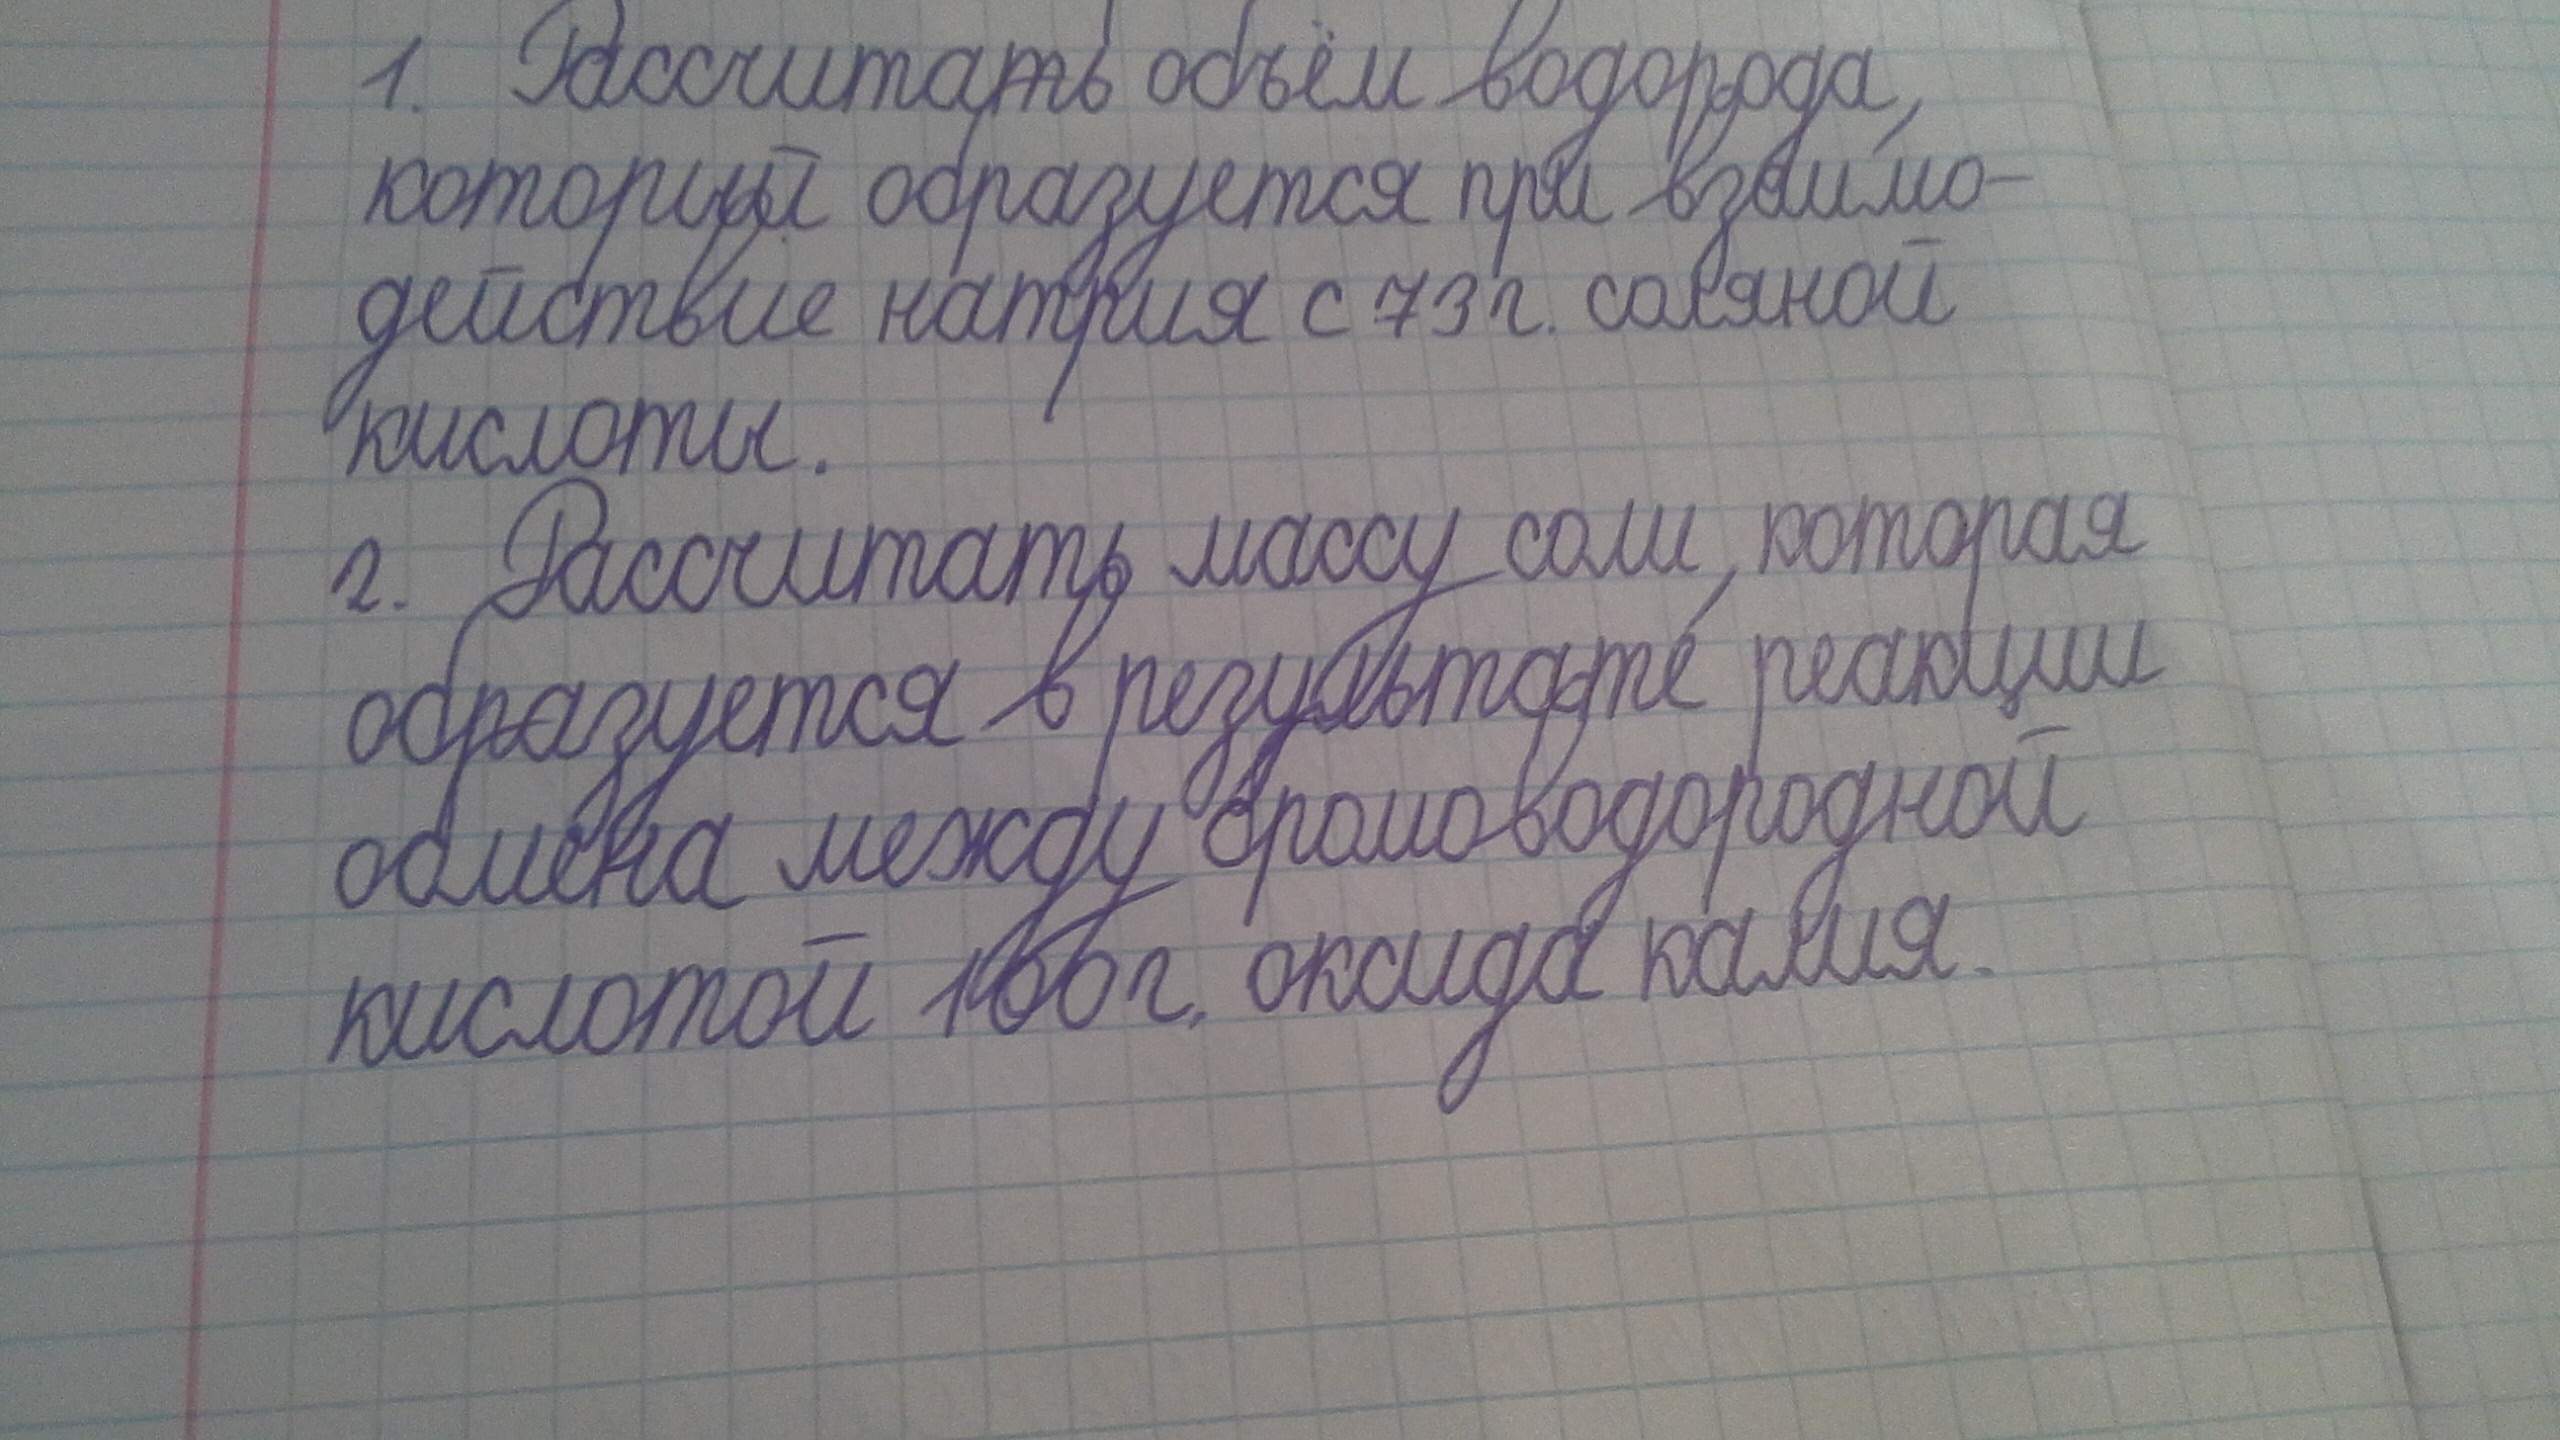 1. Рассчитать объём водорода,
который образуется при взаимо-
действие натрия с 73 г. соляной
кислоты.
2. Рассчитать массу соли, которая
образуется в результате реакции
обмена между бромоводородной
кислотой 100 г. оксида калия.